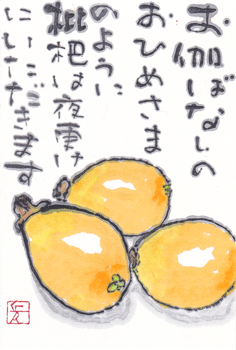 お伽ばなしの
おひめさま
のように
枇杷は夜更け
にいただきます